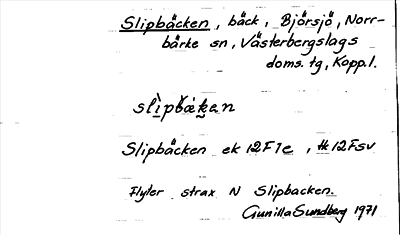 Slipbäcken, bäck, Björsjö, Norr-
bärke sn, Västerbergslags
doms. tg, Kopp. l.
Slipbäcken ek 12F1e, 12Fsv
Flyter strax N Slipbacken.
Gunilla Sundberg 1971